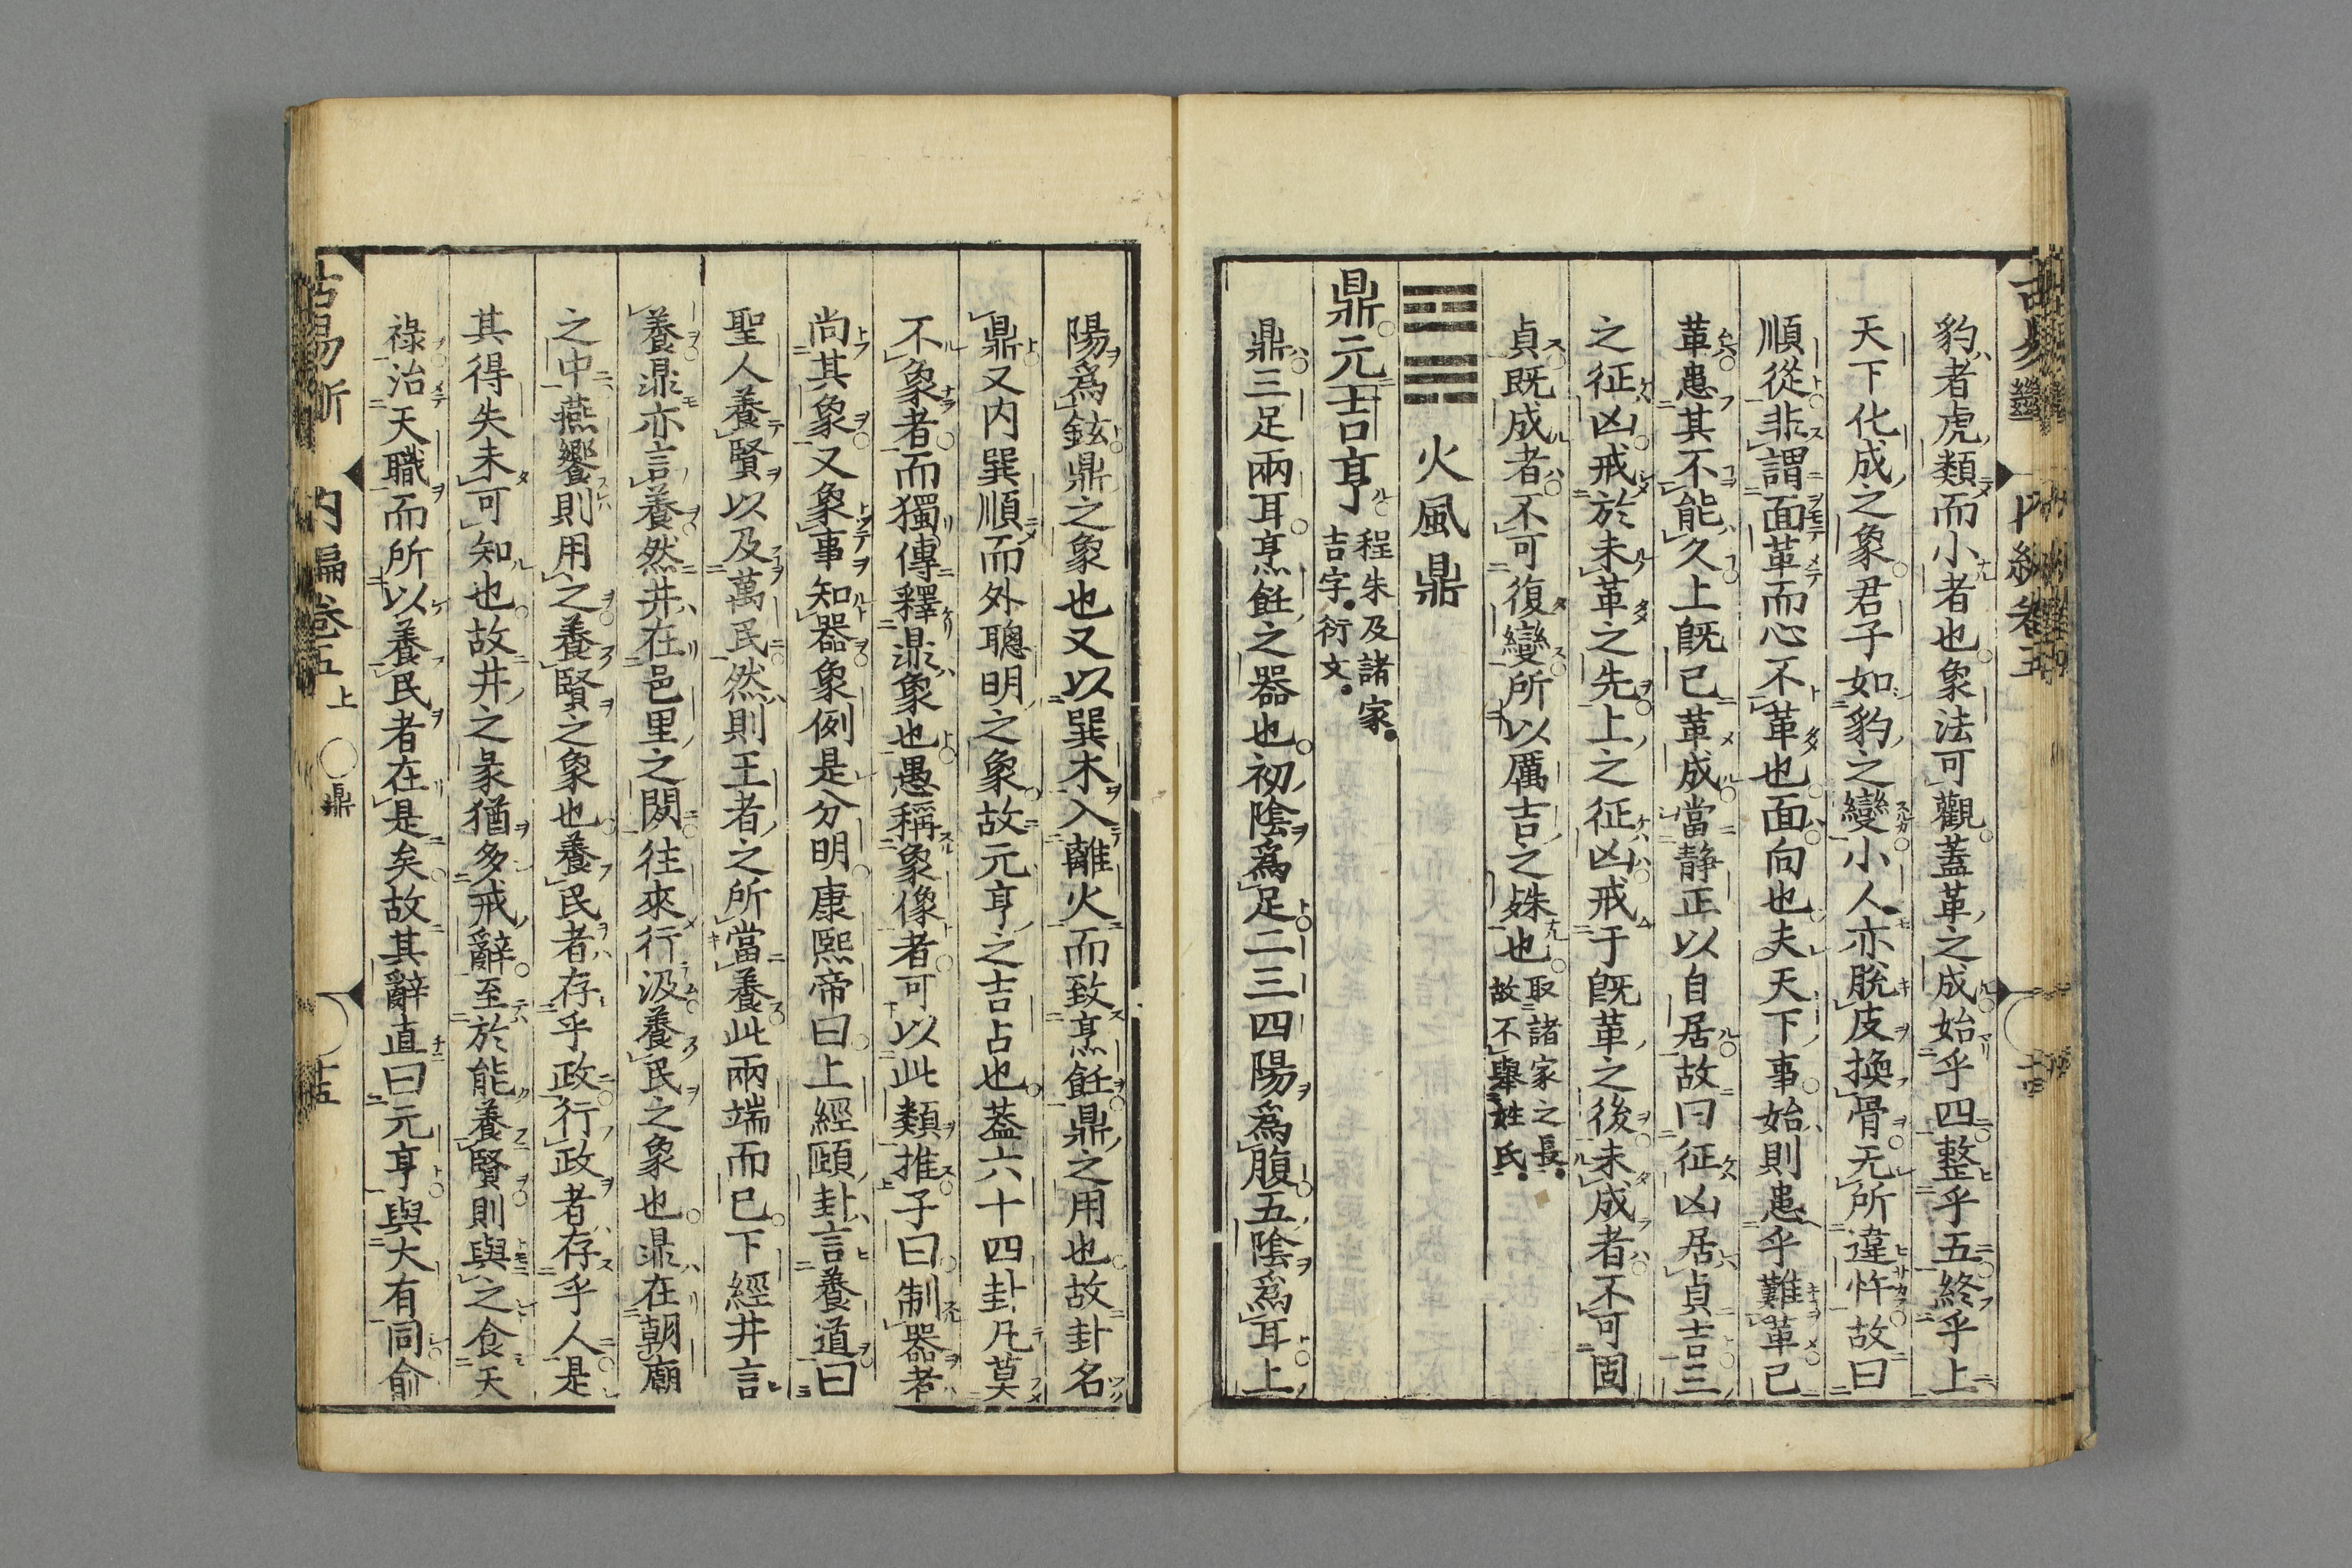 豹者虎類而小者也象法可觀蓋革之成始乎四整乎五終乎上
天下化成之象君子如豹之變小人亦脫皮換骨无所違忤故曰
順從非謂面革而心不革也面向也夫天下事始則患乎難革已
革患其不能久上既已革成當靜正以自居故曰征凶居貞吉三
之征凶戒於未革之先上之征凶戒于既革之後未成者不可固
貞既成者不可復變所以厲吉之殊也取諸家之長
故不舉姓氏
火風鼎
鼎元吉亨程朱及諸家
吉字衍文
鼎三足兩耳烹飪之器也初陰爲足二三四陽爲腹五陰爲耳上
陽爲鉉鼎之象也又以巽木入離火而致烹飪鼎之用也故卦名
鼎又内巽順而外聰明之象故元亨之吉占也蓋六十四卦凡莫
不象者而獨傳釋鼎象也愚稱象像者可以此類推子曰制器者
尚其象又象事知器象例是分明康熙帝曰上經頤卦言養道曰
聖人養賢以及萬民然則王者之所當養此兩端而已下經井言
養鼎亦言養然井在邑里之閒往來行汲養民之象也鼎在朝廟
之中燕饗則用之養賢之象也養民者存乎政行政者存乎人是
其得失未可知也故井之彖猶多戒辭至於能養賢則與之食天
祿治天職而所以養民者在是矣故其辭直曰元亨與大有同俞
内編卷五上 鼎